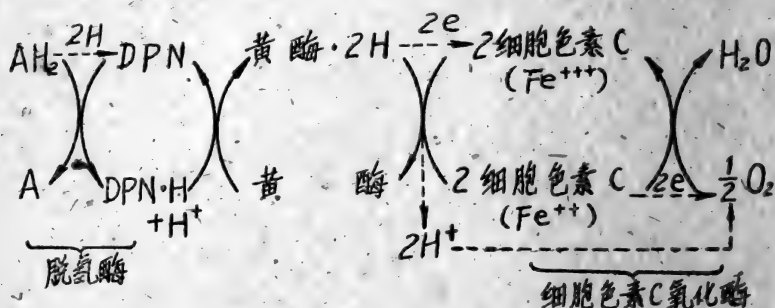 AH₂ 2H DPN 黄酶·2H 2e 2细胞色素C H₂O
(Fe⁺⁺⁺)
A DPN·H 黄 酶 2细胞色素C 2e ½O₂
+H⁺ (Fe⁺⁺)
2H⁺
脱氢酶 细胞色素C氧化酶